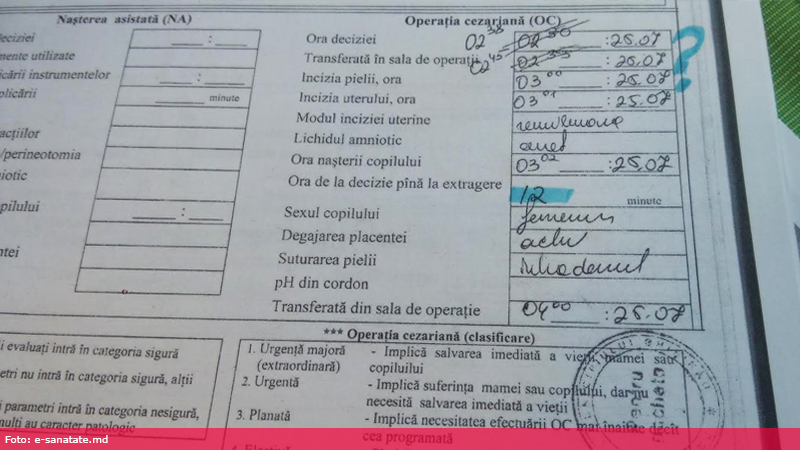 Naşterea asistată (NA)
Operaţia cezariană (OC)
deciziei
Ora deciziei
02 30 :25.07
mente utilizate
Transferată în sala de operaţii
02 45
:25.07
icării instrumentelor
Incizia pielii, ora
03 00 :25.07
plicării
minute
Incizia uterului, ora
03 01 :25.07
Modul inciziei uterine
acţiilor
Lichidul amniotic
/perineotomia
Ora naşterii copilului
03 02 :25.07
niotic
Ora de la decizie pînă la extragere
12 minute
opilului
:
Sexul copilului
feminin
Degajarea placentei
activ
ntei
Suturarea pielii
pH din cordon
Transferată din sala de operaţie
04 00 :25.07
*** Operaţia cezariană (clasificare)
i evaluaţi intră în categoria sigură
1. Urgenţă majoră (extraordinară)
- Implică salvarea imediată a vieţii mamei sau
copiluilui
etri nu intră în categoria sigură, alţii
2. Urgentă
- Implică suferinţa mamei sau copilului, dar nu
necesită salvarea imediată a vieţii
i parametri intră în categoria nesigură,
multi au caracter patologic
3. Planată
- Implică necesitatea efectuării OC mai înainte decît
cea programată
pentru
rachete
Foto: e-sanatate.md